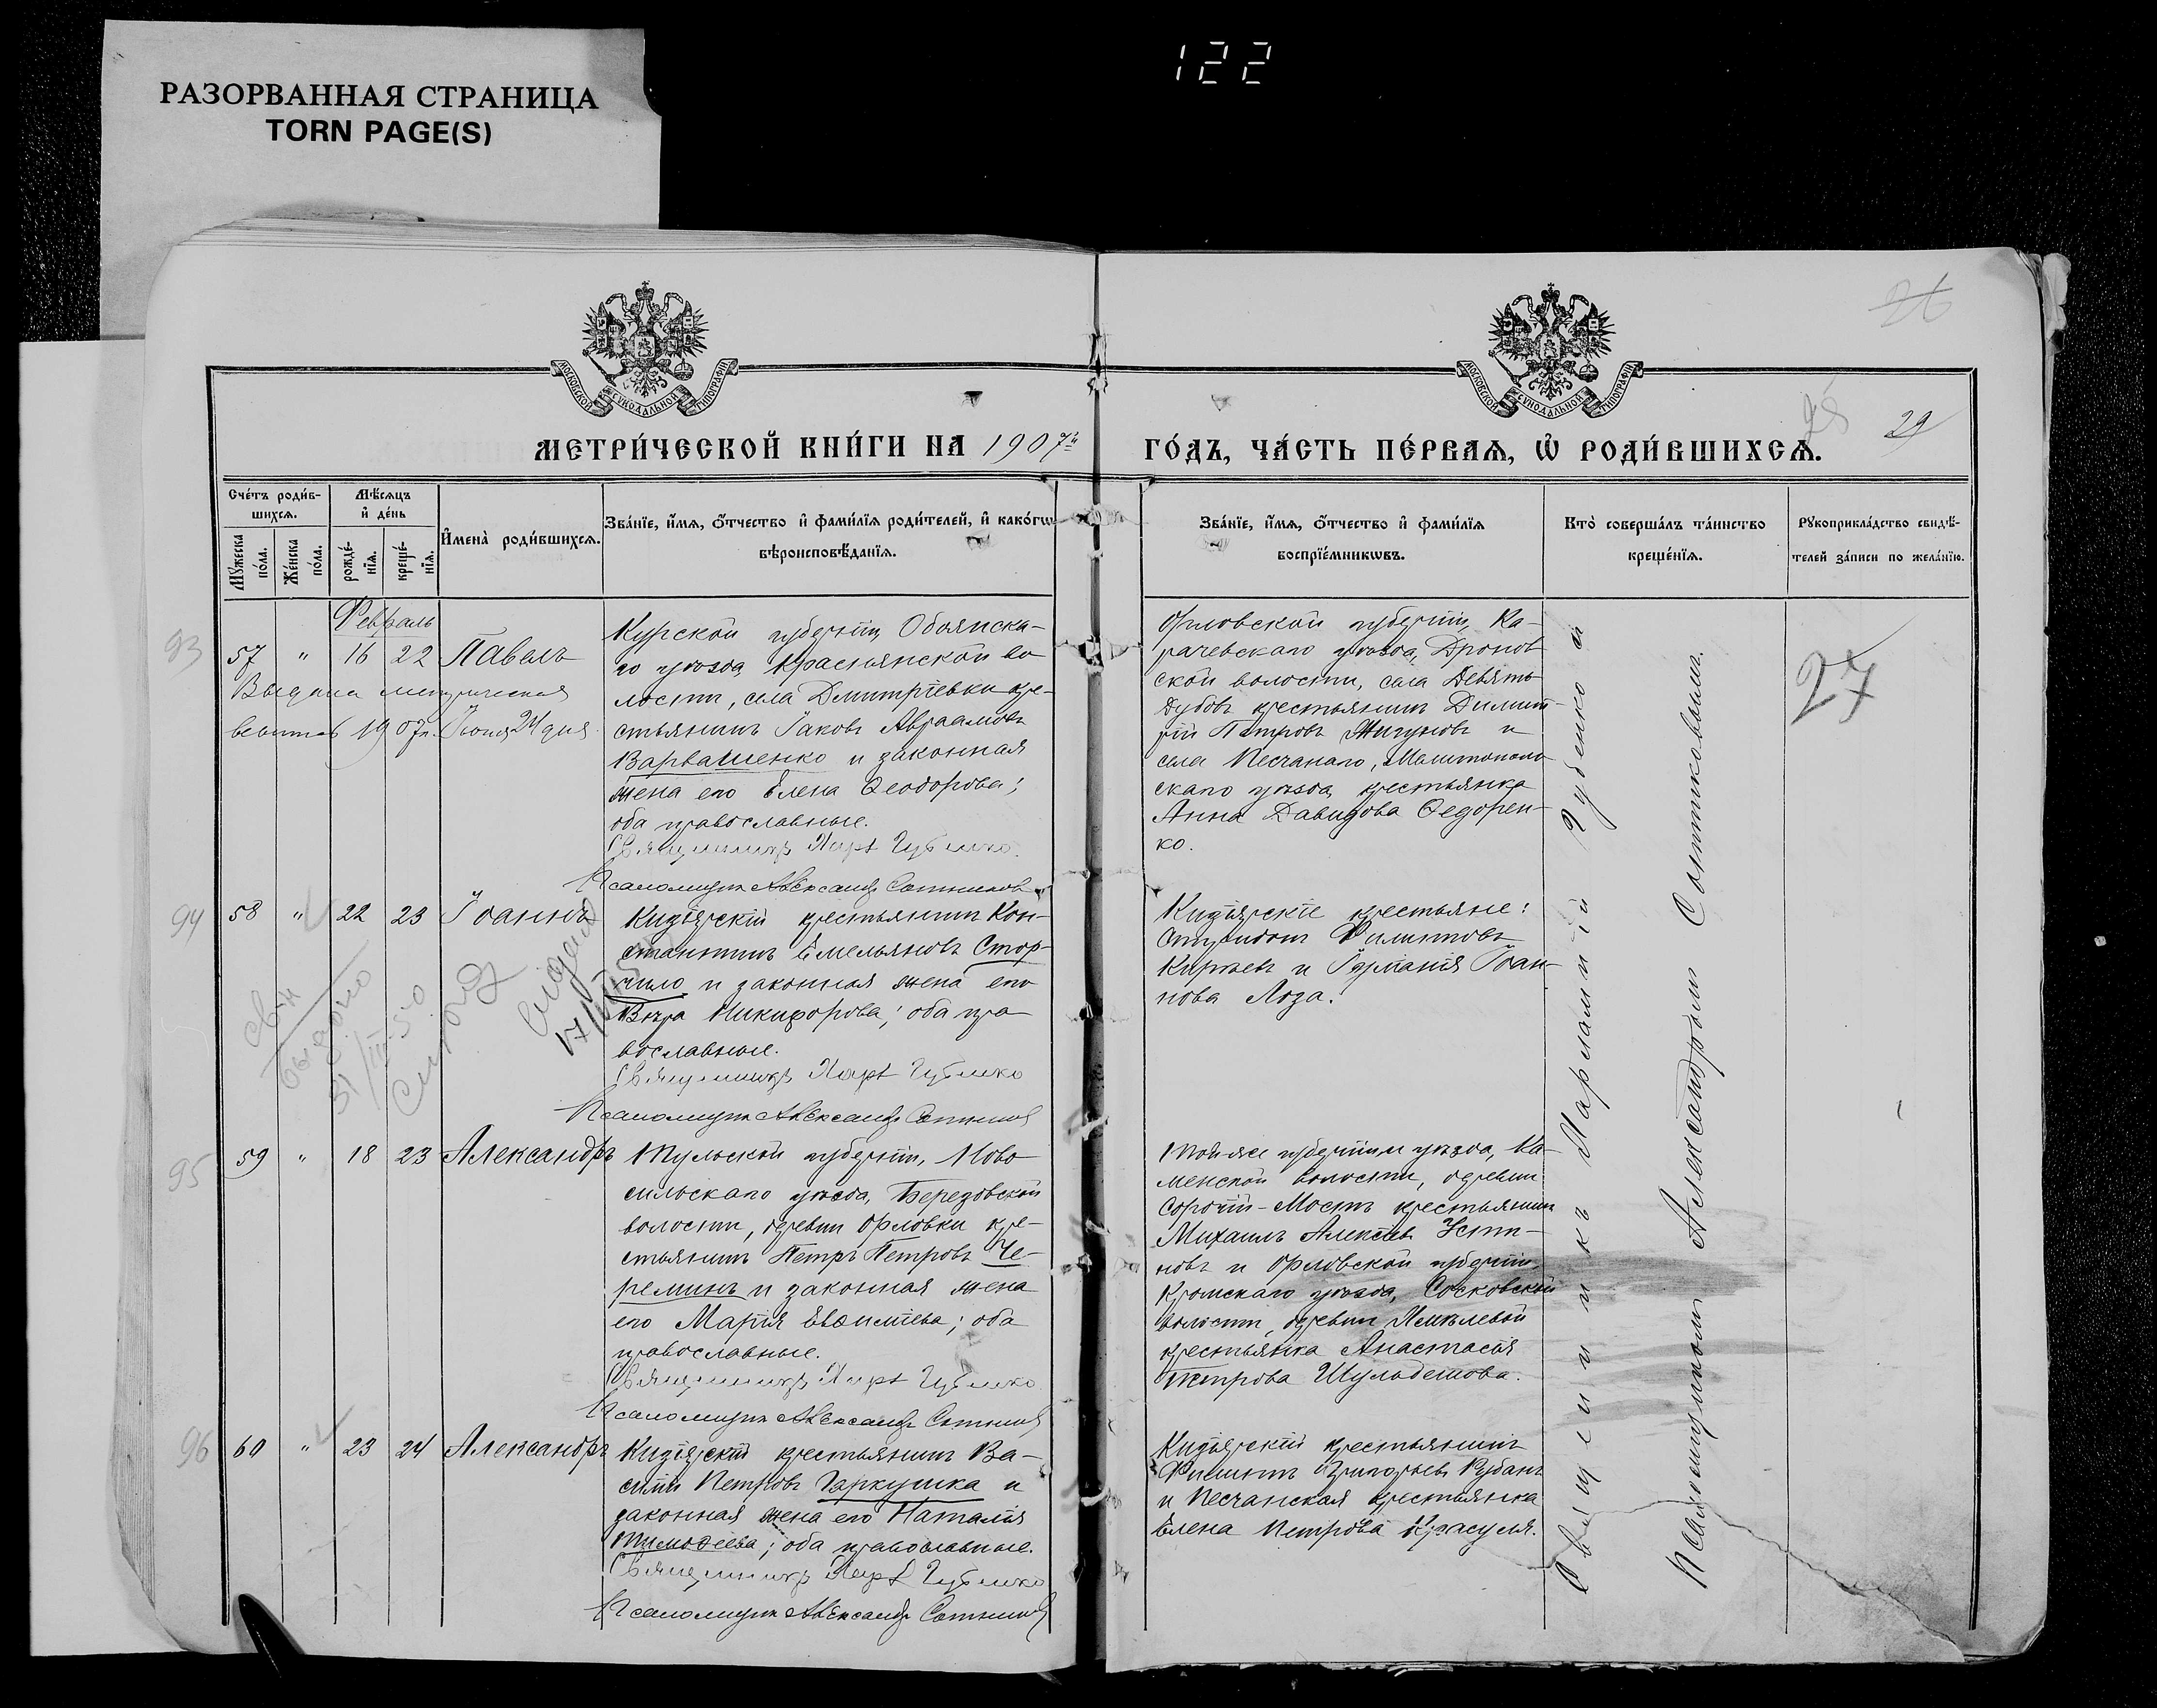 122
РАЗОРВАННАЯ СТРАНИЦА
TORN PAGE(S)
26
МОСКОВСКОЙ СѴНОДАЛЬНОЙ ТИПОГРАФІИ
МОСКОВСКОЙ СѴНОДАЛЬНОЙ ТИПОГРАФІИ
29
МЕТРИ́ЧЕСКОЙ КНИ́ГИ НА 1907й
ГО́ДЪ, ЧА́СТЬ ПЕ́РВАѦ, Ѽ РОДИ́ВШИХСѦ.
Сче́тъ роди́в-
шихсѧ.
Мѣ́сѧцъ
и҆ де́нь
Мꙋ́жеска по́ла.
Же́нска по́ла.
рожде́-
нїѧ.
креще́-
нїѧ.
И҆мена̀ роди́вшихсѧ.
Зва́нїе, и҆́мѧ, ѻ҆́тчество и҆ фами́лїѧ роди́телей, и҆ како́гѡ
вѣроисповѣ́данїѧ.
Зва́нїе, и҆́мѧ, ѻ҆́тчество и҆ фами́лїѧ
воспрїе́мникѡвъ.
Кто̀ соверша́лъ та́инство
креще́нїѧ.
Рꙋкоприкла́дство свидѣ́-
телей за́писи по жела́нїю.
Февраль
93
57 " 16 22 Павелъ
1907г. Іюня 24 дня
Курской губерніи, Обоянска-
го уѣзда, Краснянской во
лости, села Дмитріевки кре-
стьянинъ Іаковъ Авраамовъ
Варвашенко и законная
жена его Елена Ѳеодорова;
оба православные.
Священникъ Харл. Губенко
Псаломщикъ Александръ Сотниковъ
Орловской губерніи, Ка-
рачевскаго уѣзда, Дронов
ской волости, села Девять
Дубовъ крестьянинъ Димит-
рій Петровъ Жигуновъ и
села Песчанаго, Мелитополь
скаго уѣзда, крестьянка
Анна Давидова Ѳедорен-
ко.
27
94
58 " 22 23 Іоаннъ
выдано
31/III-50
Кизіярскій крестьянинъ Кон-
стантинъ Емельяновъ Стор-
чило и законная жена его
Вѣра Никифорова; оба пра
вославные.
Священникъ Харл. Губенко
Псаломщикъ Александръ Сотниковъ
Кизіярскіе крестьяне:
Филипповъ
Кирѣевъ и Іоан-
нова Лоза.
95
59 " 18 23 Александръ
Тульской губерніи, Ново
сильскаго уѣзда, Березовской
волости, деревни Орловки кре-
стьянинъ Петръ Петровъ Че-
реминъ и законная жена
его Марія Евѳиміева; оба
православные.
Священникъ Харл. Губенко
Псаломщикъ Александръ Сотниковъ
Той-же губерніи и уѣзда, Ка-
менской волости, деревни
Сорочій-Мостъ крестьянинъ
Михаилъ Алексѣевъ Усти-
новъ и Орловской губерніи,
Кромскаго уѣзда, Сосковской
волости, деревни Хмѣлевой
крестьянка Анастасія
Петрова Шульдешова.
96
60 " 23 24 Александръ
Кизіярскій крестьянинъ Ва-
силій Петровъ Гаркушка и
законная жена его Наталія
Тимоѳеева; оба православные.
Священникъ Харл. Губенко
Псаломщикъ Александръ Сотниковъ
Кизіярскій крестьянинъ
Филиппъ Григорьевъ Рубанъ
и Песчанская крестьянка
Елена Петрова Красуля.
Священникъ Харлампій Губенко и
Псаломщикомъ Александромъ Сотниковымъ.